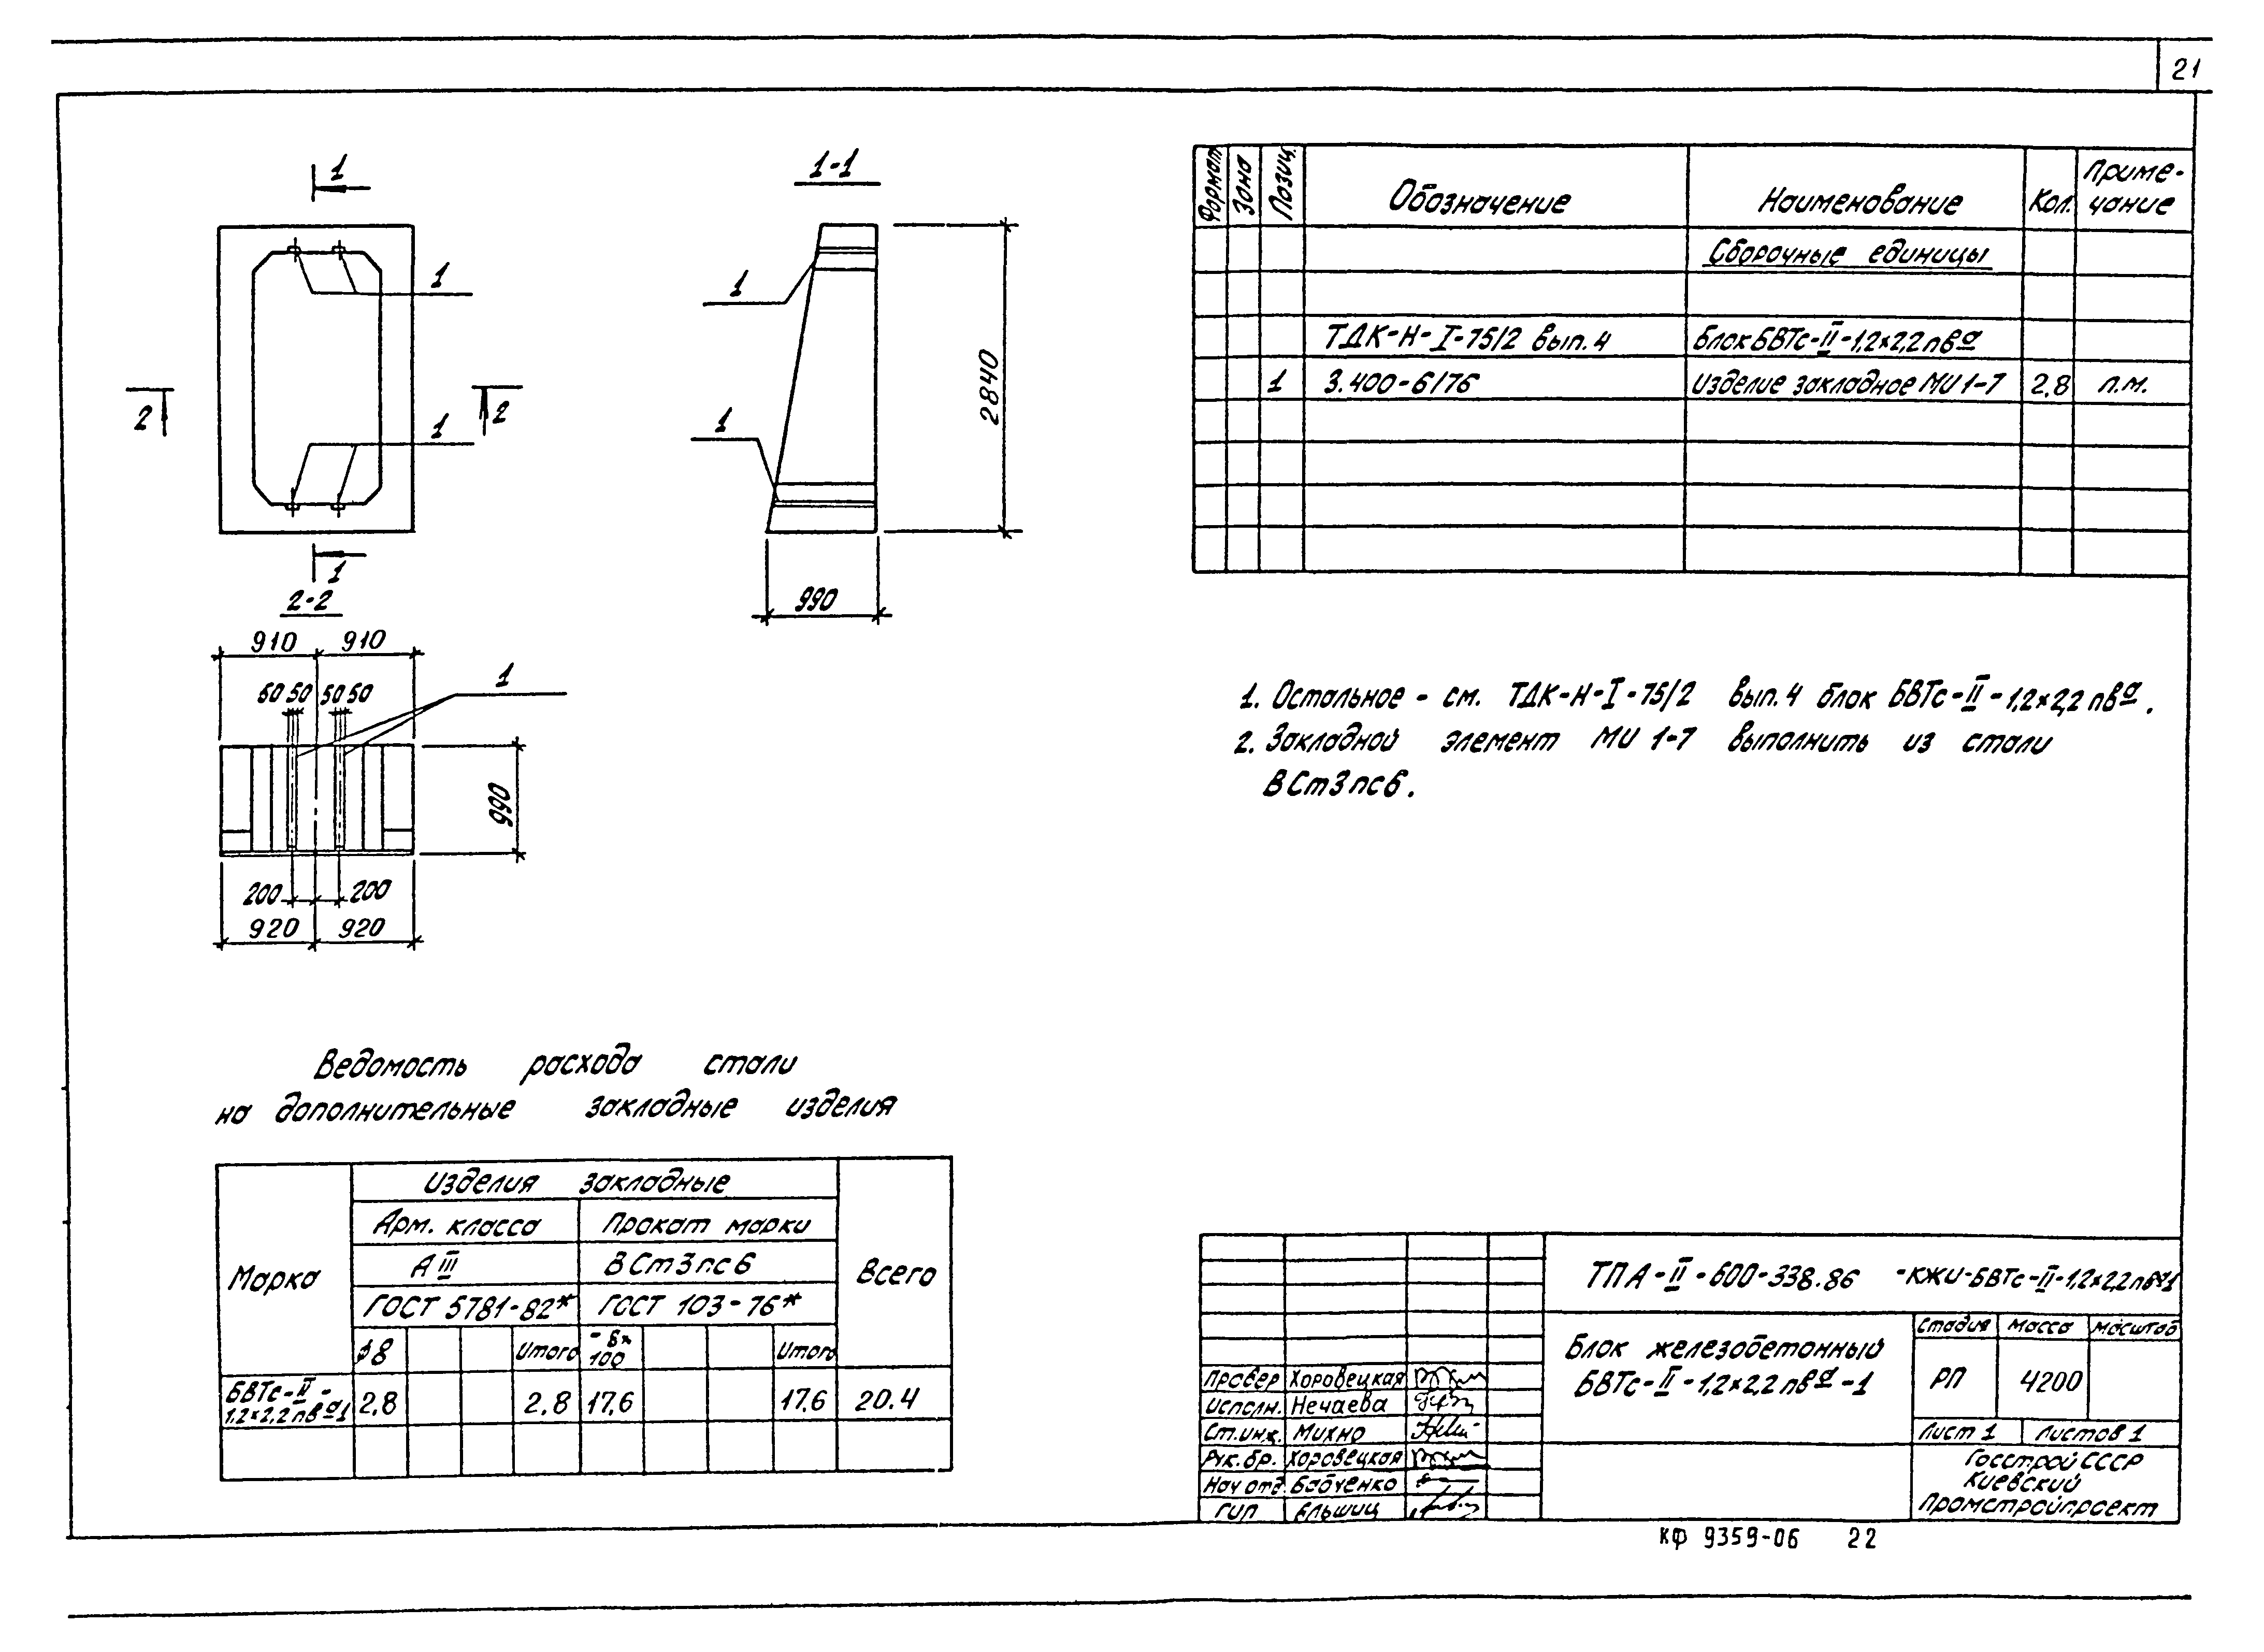 21
1
1
1
2
2
1
1-1
1
1
2840
990
2-2
910 910
50 50 50 50
1
990
200 200
920 920
Формат Зона Позиц. Обозначение Наименование Кол. Приме-чание
Сборочные единицы
ТДК-Н-I-75/2 вып.4 Блок БВТс-II-1,2×2,2пва
1 3.400-6/76 Изделие закладное МИ 1-7 2,8 п.м.
1. Остальное - см. ТДК-Н-I-75/2 вып.4 блок БВТс-II-1,2×2,2пва.
2. Закладной элемент МИ 1-7 выполнить из стали
ВСт3пс6.
Ведомость расхода стали
на дополнительные закладные изделия
Марка Изделия закладные Всего
Арм. класса Прокат марки
АIII ВСт3пс6
ГОСТ 5781-82* ГОСТ 103-76*
ϕ8 Итого -8×100 Итого
БВТс-II-
1,2×2,2пва-1 2,8 2,8 17,6 17,6 20.4
ТПА-II-600-338.86 -КЖИ-БВТс-II-1,2×2,2пва-1
Блок железобетонный
БВТс-II-1,2×2,2пва-1
Стадия Масса Масштаб
РП 4200
Лист 1 Листов 1
Провер Хоровецкая
Исполн. Нечаева
Ст.инж. Михно
Рук.бр. Хоровецкая
Нач отд. Бабченко
ГИП Ельшиц
Госстрой СССР
Киевский
Промстройпроект
КФ 9359-06 22